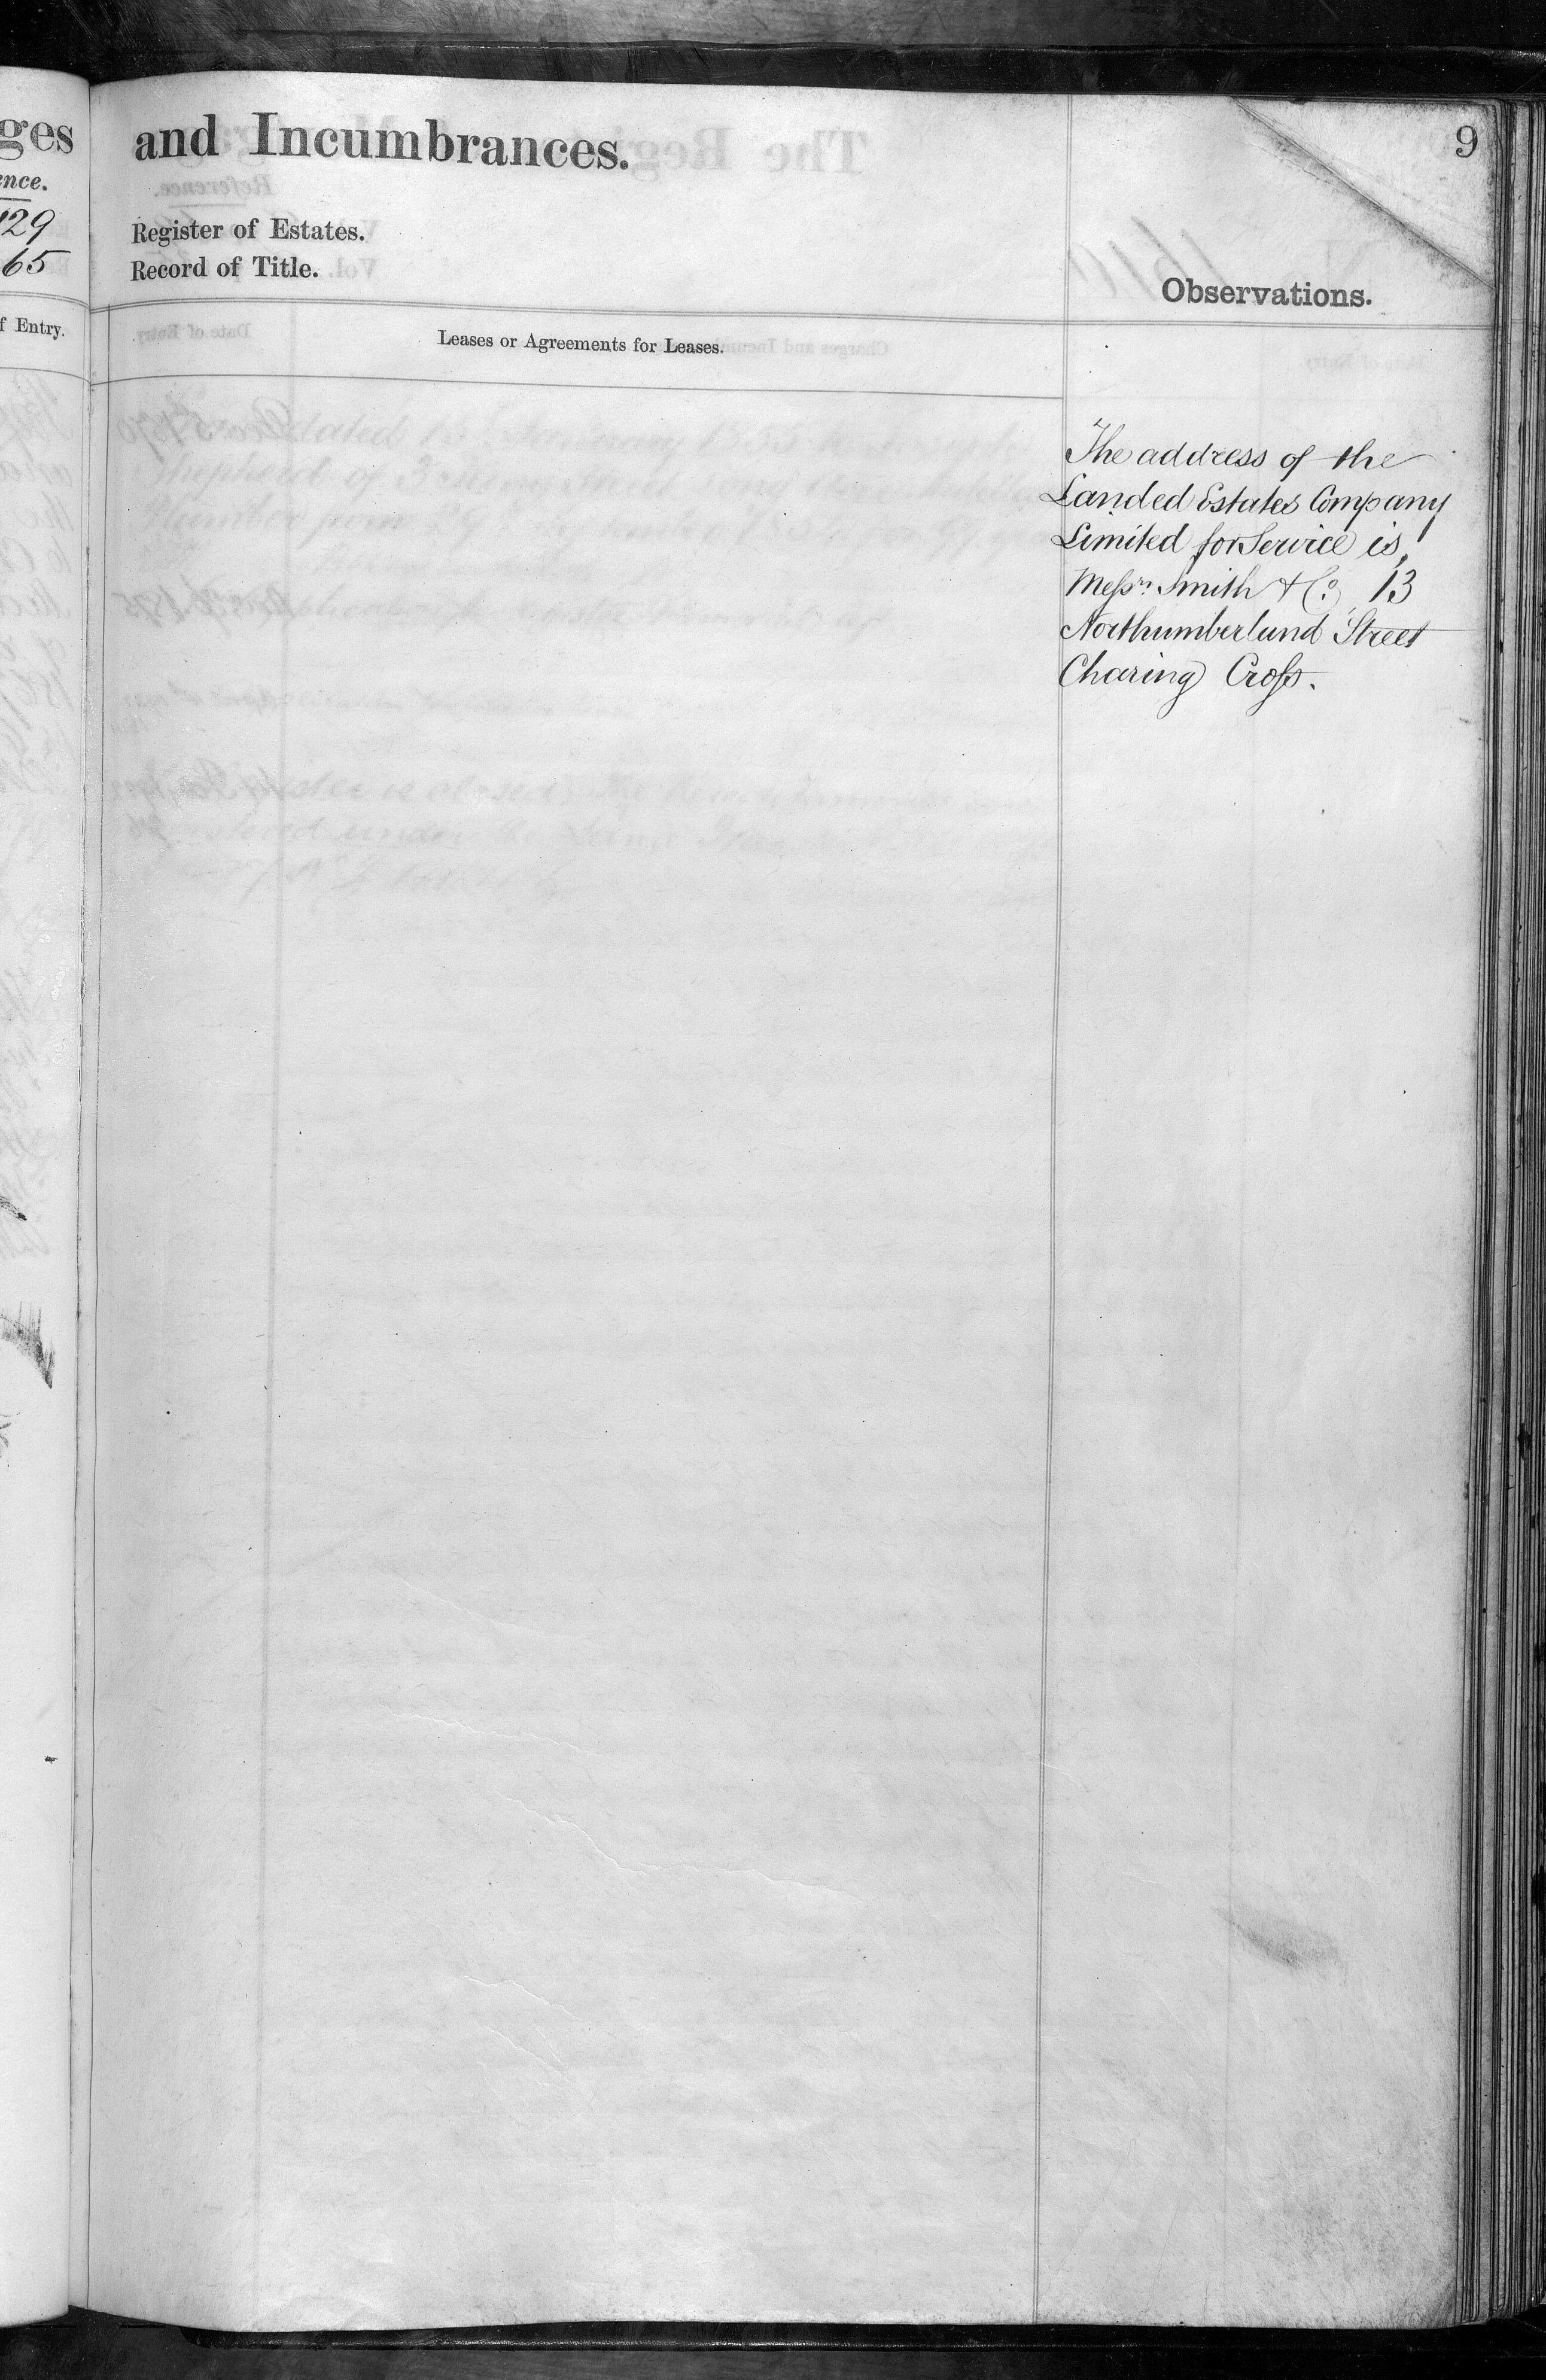 ges
ence.
129
65
f Entry.
and Incumbrances.
9
Register of Estates.
Record of Title.
Observations.
Leases or Agreements for Leases.
The address of the
Landed Estates Company
Limited for Service is,
Messrs. Smith & Co. 13
Northumberland Street
Charing Cross.